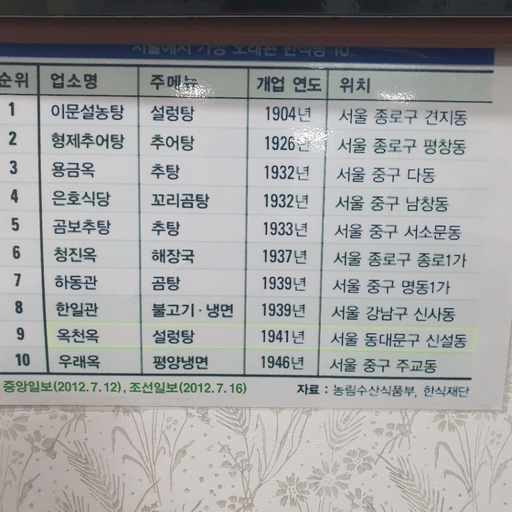 서울에서 가장 오래된 한식당 10.
순위 업소명 주메뉴 개업 연도 위치
1 이문설농탕 설렁탕 1904년 서울 종로구 견지동
2 형제추어탕 추어탕 1926년 서울 종로구 평창동
3 용금옥 추탕 1932년 서울 중구 다동
4 은호식당 꼬리곰탕 1932년 서울 중구 남창동
5 곰보추탕 추탕 1933년 서울 중구 서소문동
6 청진옥 해장국 1937년 서울 종로구 종로1가
7 하동관 곰탕 1939년 서울 중구 명동1가
8 한일관 불고기·냉면 1939년 서울 강남구 신사동
9 옥천옥 설렁탕 1941년 서울 동대문구 신설동
10 우래옥 평양냉면 1946년 서울 중구 주교동
중앙일보(2012.7.12), 조선일보(2012.7.16) 자료 : 농림수산식품부, 한식재단